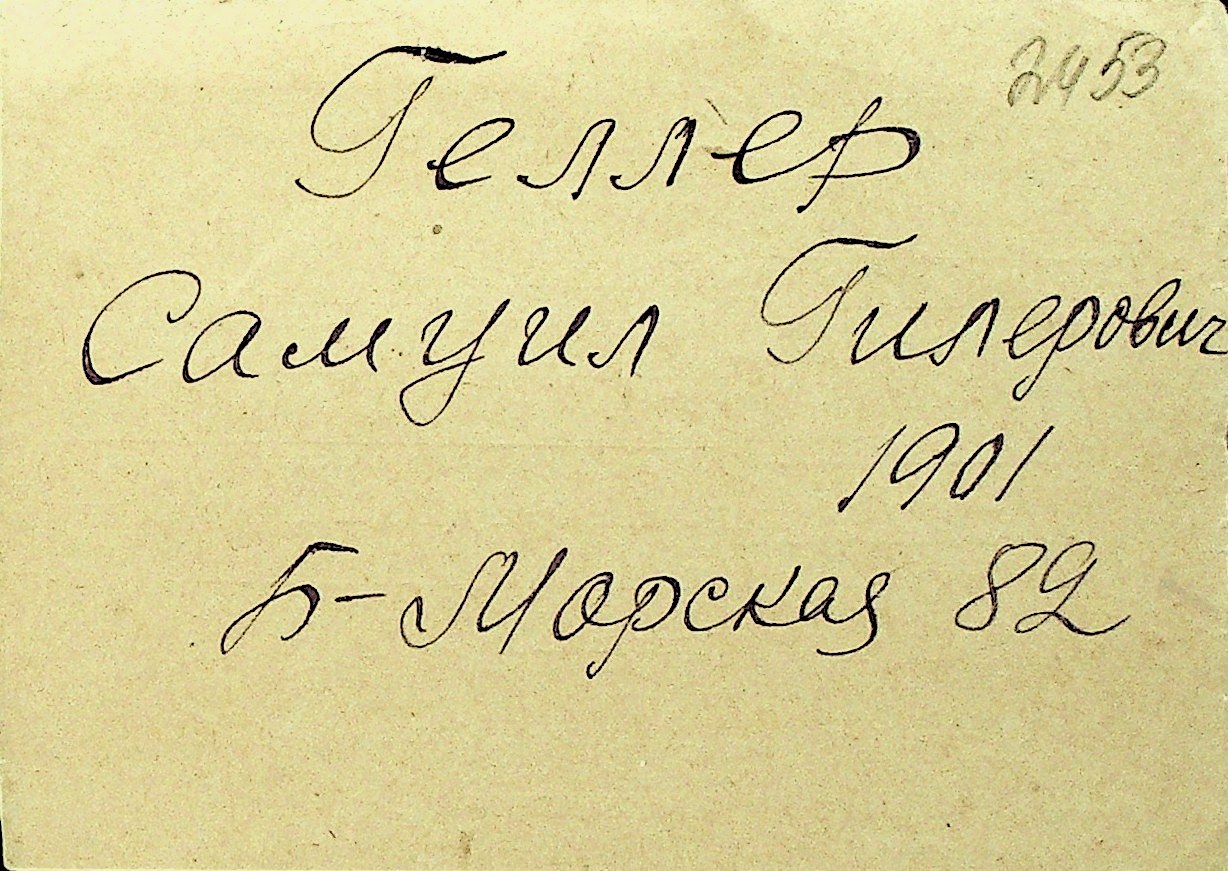 2453
Геллер
Самуил Гилерович
1901
Б-Морская 82